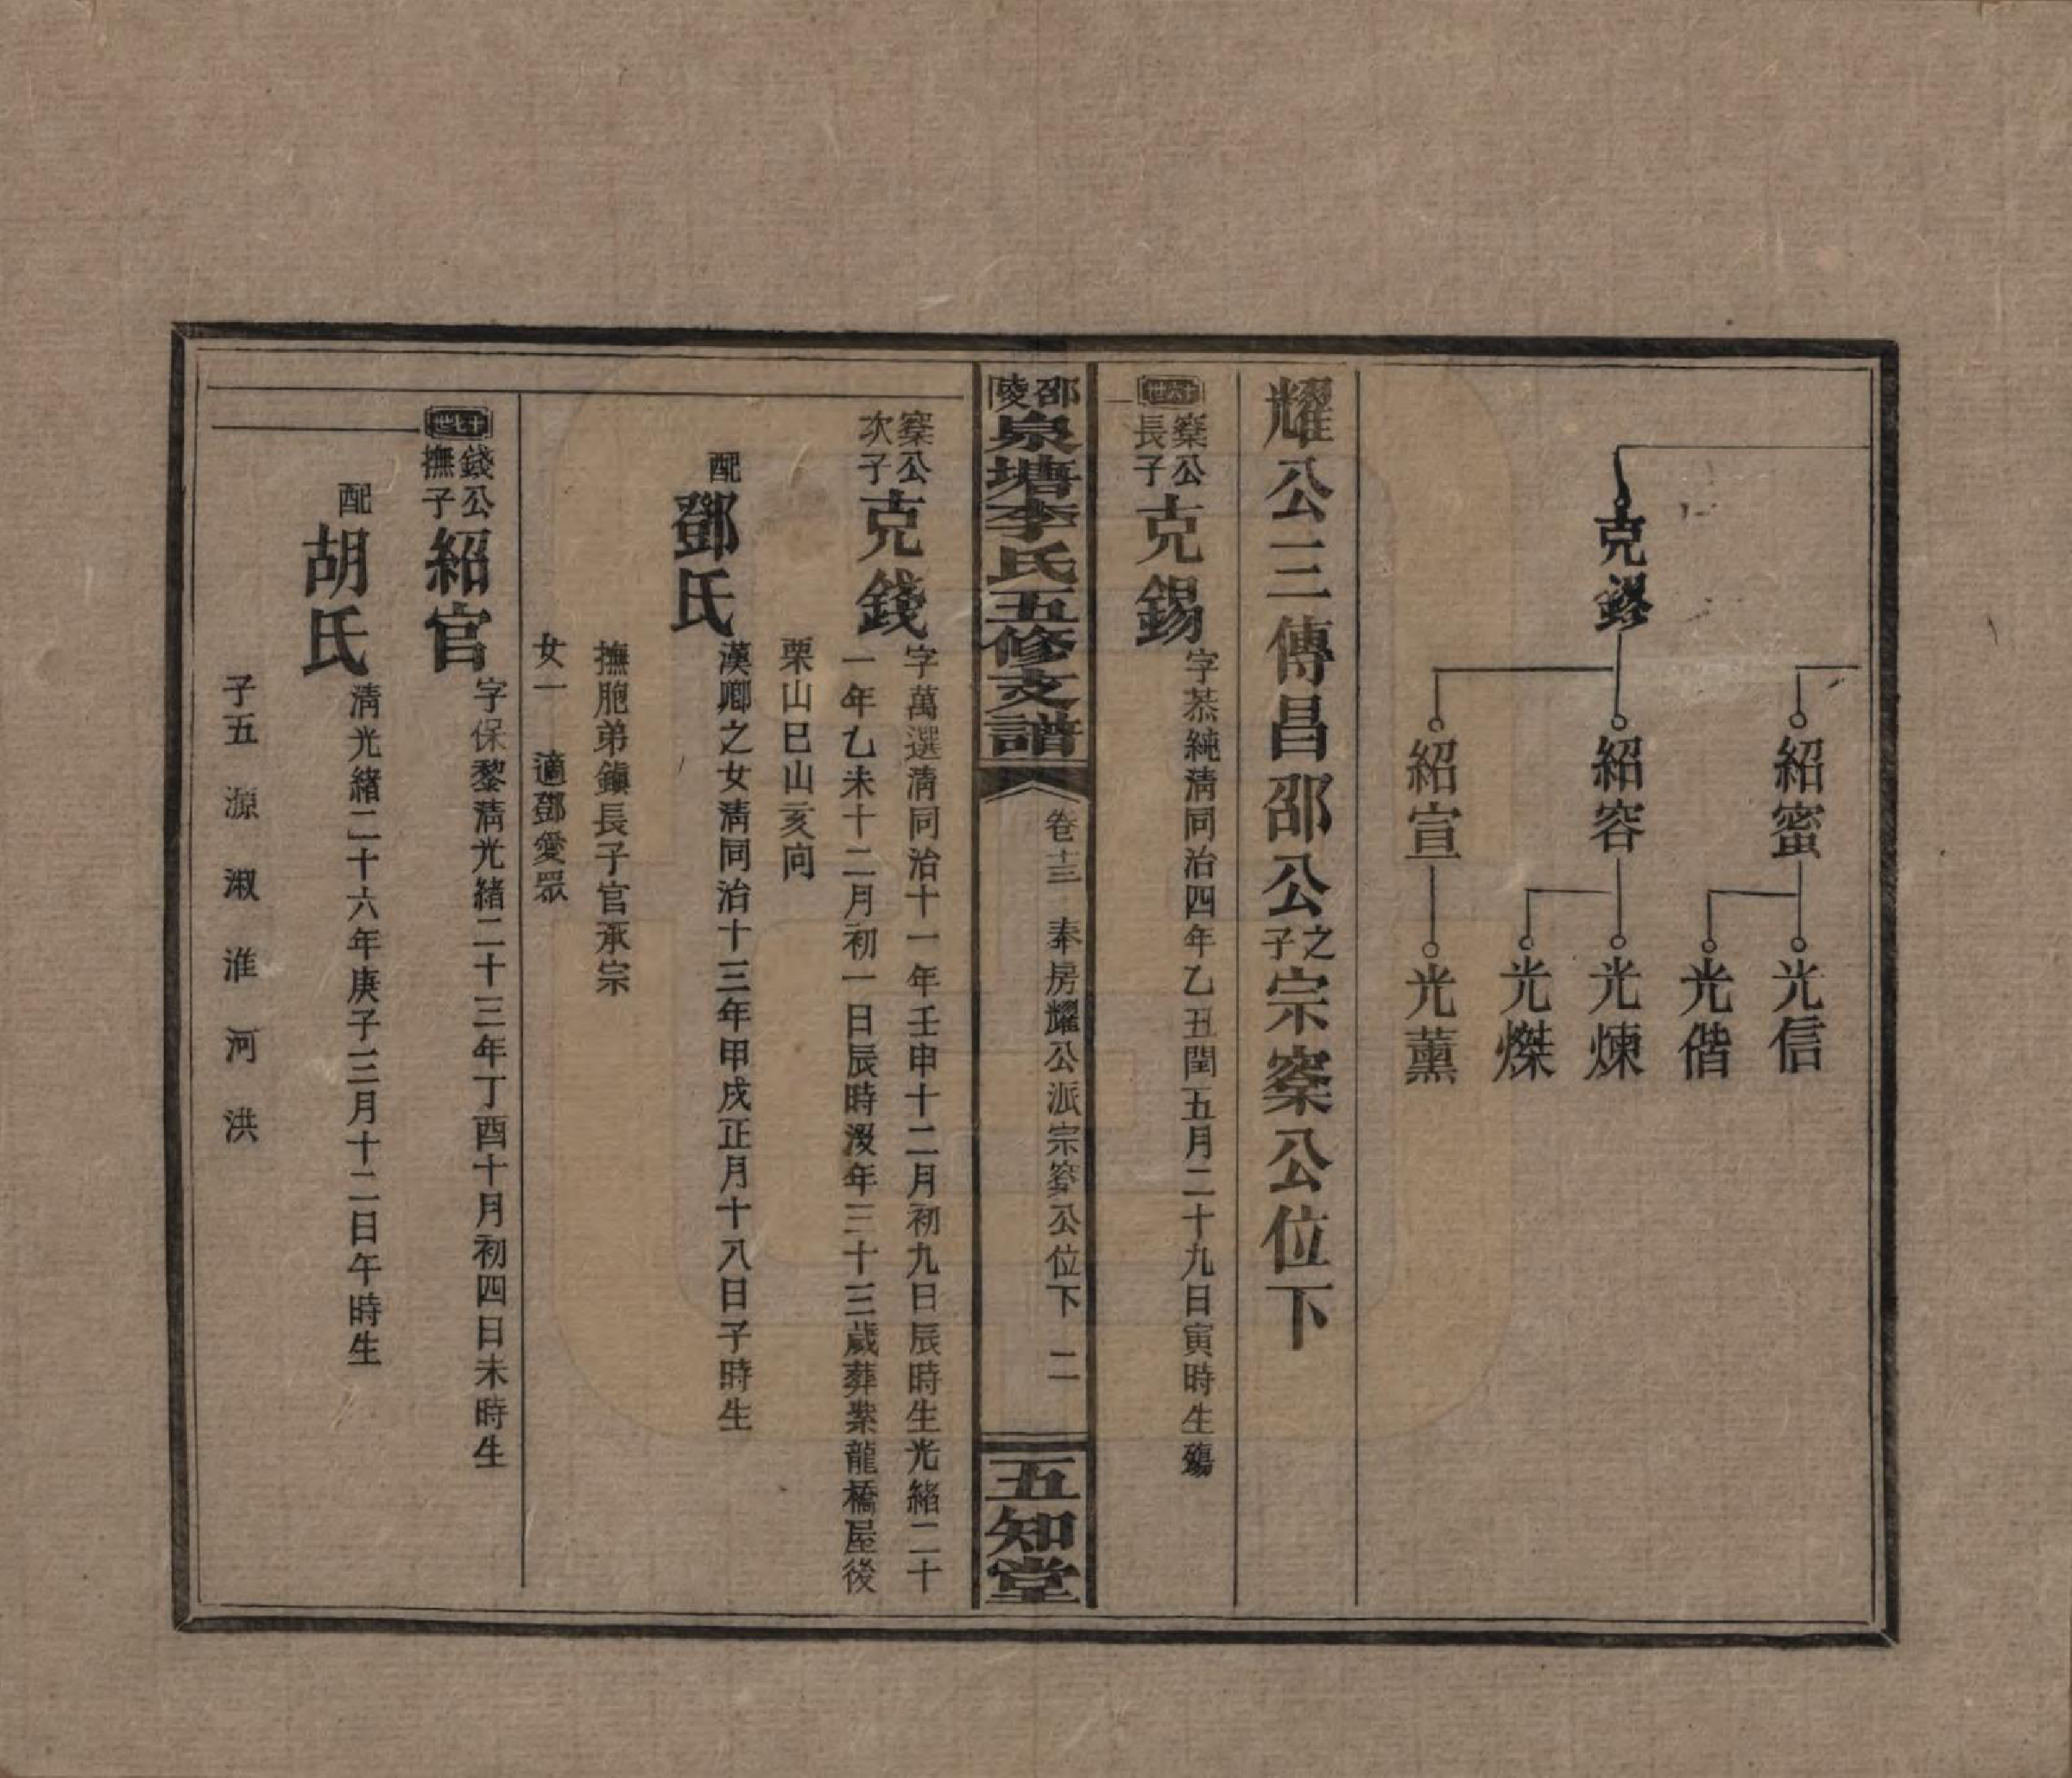 克鐸
紹蜜
紹容
紹宣
光信
光偕
光煉
光爃
光薰
耀公三傳昌邵公之子宗寀公位下
十六世
寀公長子克錫
字恭純清同治四年乙丑閏五月二十九日寅時生殤
邵陵泉塘李氏五修支譜
卷十三 奉房耀公派宗寀公位下 二
五知堂
寀公次子克錢
字萬選清同治十一年壬申十二月初九日辰時生光緒二十
一年乙未十二月初一日辰時沒年三十三歲葬紫龍橋屋後
栗山巳山亥向
配鄧氏
漢卿之女清同治十三年甲戌正月十八日子時生
撫胞弟鎮長子官承宗
女一 適鄧愛眾
十七世
錢公撫子紹官
字保黎清光緒二十三年丁酉十月初四日未時生
配胡氏
清光緒二十六年庚子三月十二日午時生
子五 源 淑 淮 河 洪